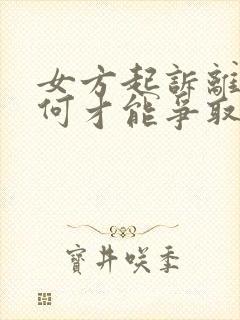 女方起訴離
何才能爭取
寶井咲季